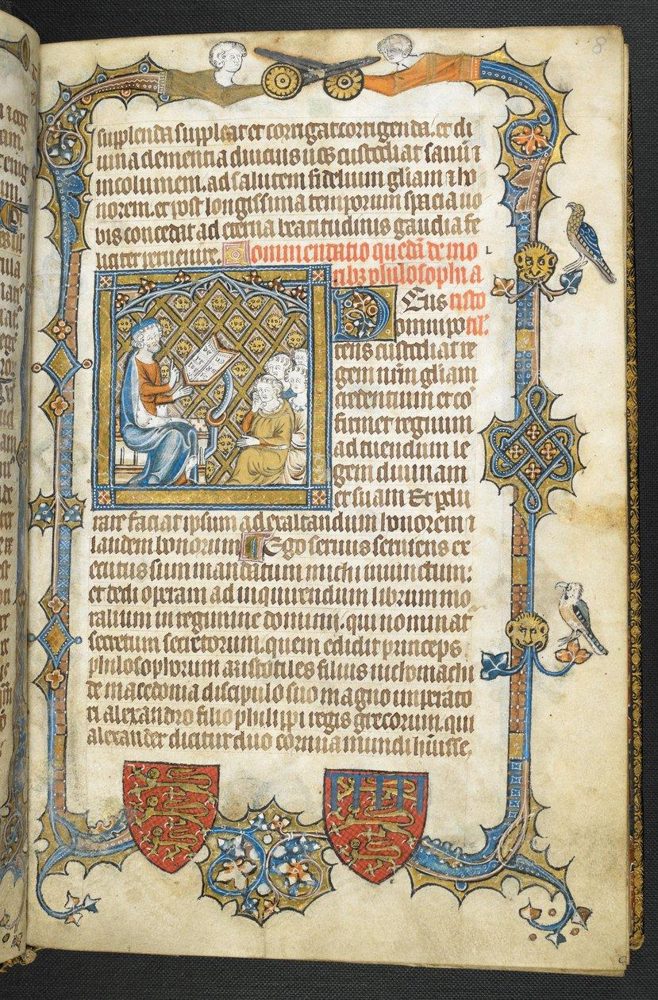 8
supplenda suppleat et corrigat corrigenda. et di
uina clementia diucius uos custodiat sanū ⁊
incolumem. ad salutem fidelium gliam ⁊ ho
norem. et post longissima temporum spacia uo
bis concedat ad eterna beatitudinis gaudia fe
liciter peruenire. Commendatio quedā de mo
ribz philosophi a
Deus risto
omnipo til'.
tens custodiat re
gem nrm gliam
credentium et cō
firmet regnum
ad tuendum le
gem diuinam
et suam Et pdu
rare faciat ipsum ad exaltandum honorem ⁊
laudem bonorum Ego seruus ex
ecutus sum mandatum michi iniunctum.
et dedi operam ad inquirendum librum mo
ralium in regimine dominij. qui nominat
secretum secretorum. quem edidit princeps
philosophorum aristotiles filius nichomachi
de macedonia discipulo suo magno imperato
ri alexandro filio philippi regis grecorum. qui
alexander dicitur duo cornua mundi